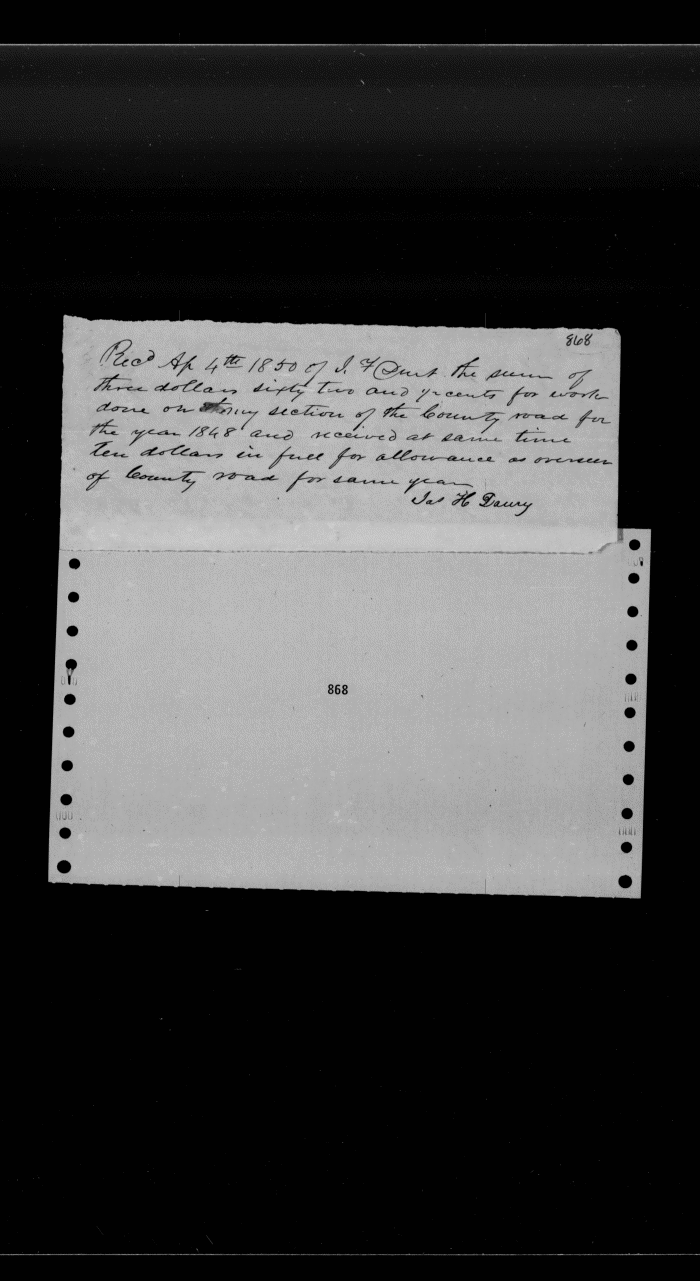 868
Recd Ap 4th 1850 of J. F the sum of
three dollars sixty two and ½ cents for work
done on my section of the County road for
the year 1848 and received at same time
ten dollars in full for allowance as overseer
of County road for same year
Jas H Dawry
868